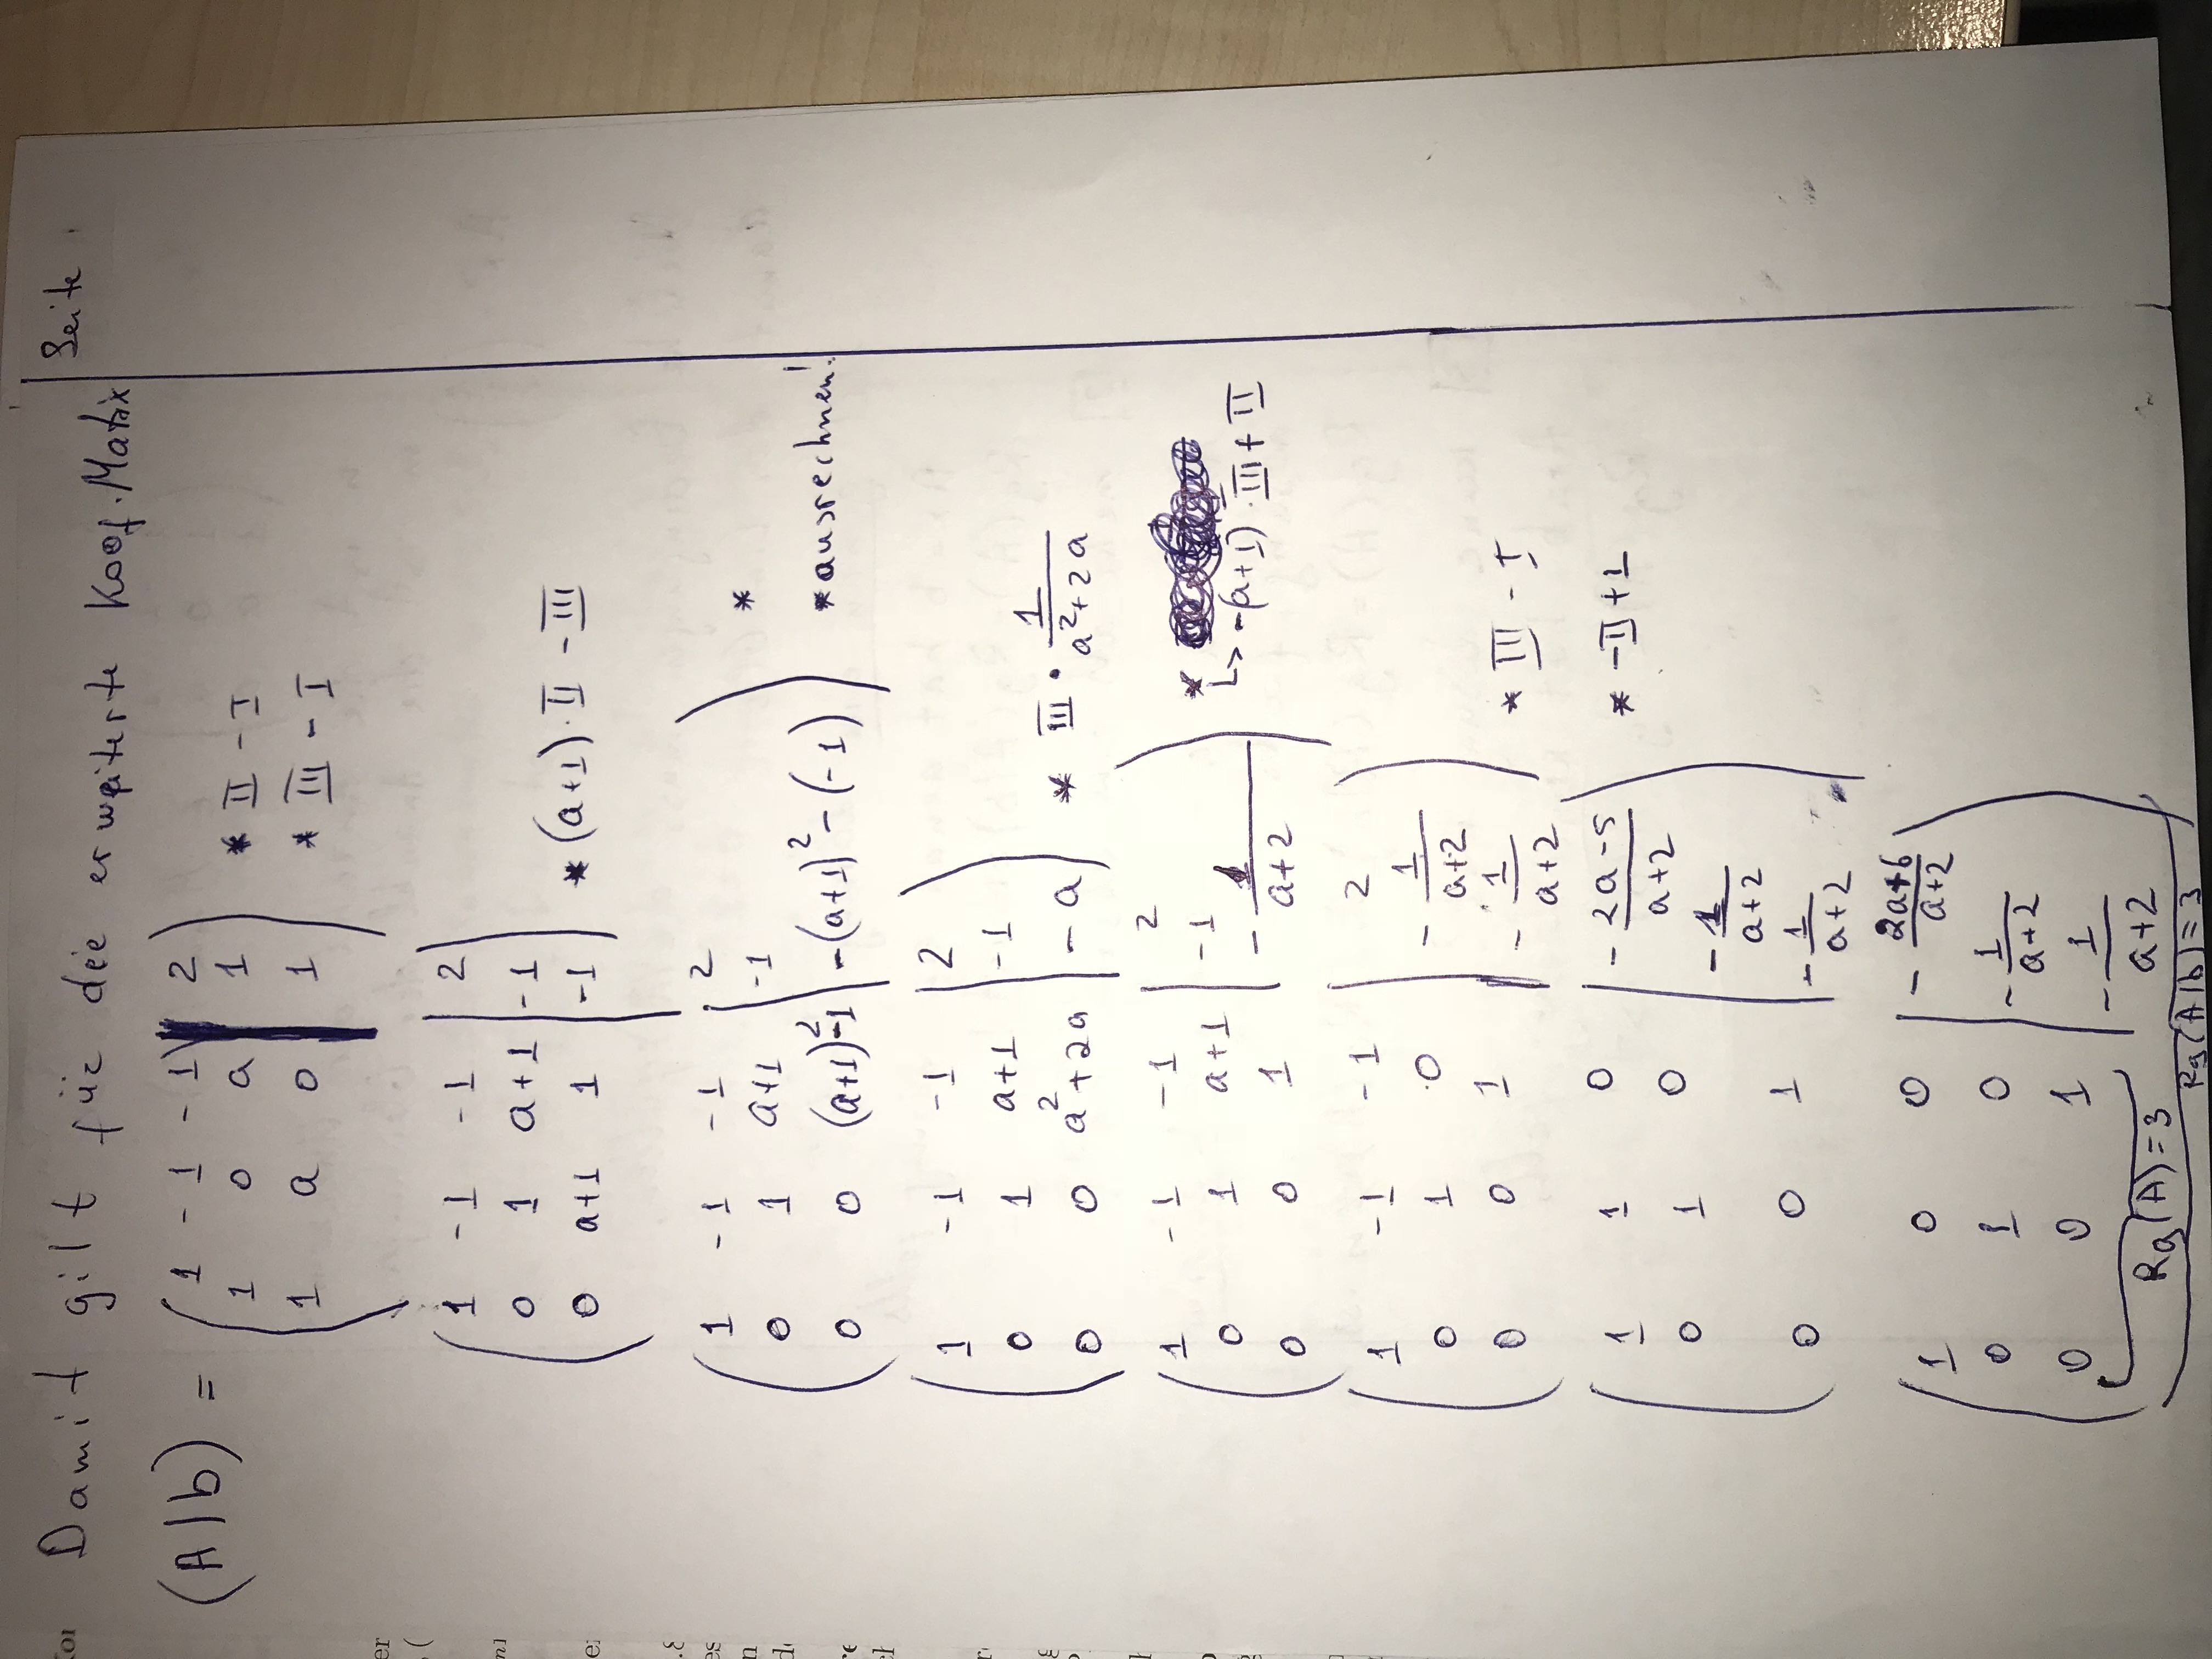 Damit gilt für die erweiterte Koef.Matrix
Seite
(A|b) = ( 1 -1 -1 | 2 )
( 1 0 a | 1 ) * II - I
( 1 a 0 | 1 ) * III - I
( 1 -1 -1 | 2 )
( 0 1 a+1 | -1 )
( 0 a+1 1 | -1 ) * (a+1)·II - III
( 1 -1 -1 | 2 ) *
( 0 1 a+1 | -1 )
( 0 0 (a+1)²-1 | -(a+1)²-(-1) ) * ausrechnen!
( 1 -1 -1 | 2 )
( 0 1 a+1 | -1 )
( 0 0 a²+2a | -a ) * III · 1/(a²+2a)
( 1 -1 -1 | 2 )
( 0 1 a+1 | -1 ) * ↳ -(a+1)·III + II
( 0 0 1 | -1/(a+2) )
( 1 -1 -1 | 2 )
( 0 1 0 | -1/(a+2) )
( 0 0 1 | -1/(a+2) ) * III - I
( 1 1 0 | -(2a-5)/(a+2) ) * -II+1
( 0 1 0 | -1/(a+2) )
( 0 0 1 | -1/(a+2) )
( 1 0 0 | -(2a+6)/(a+2) )
( 0 1 0 | -1/(a+2) )
( 0 0 1 | -1/(a+2) )
Rg(A)=3
Rg(A|b)=3